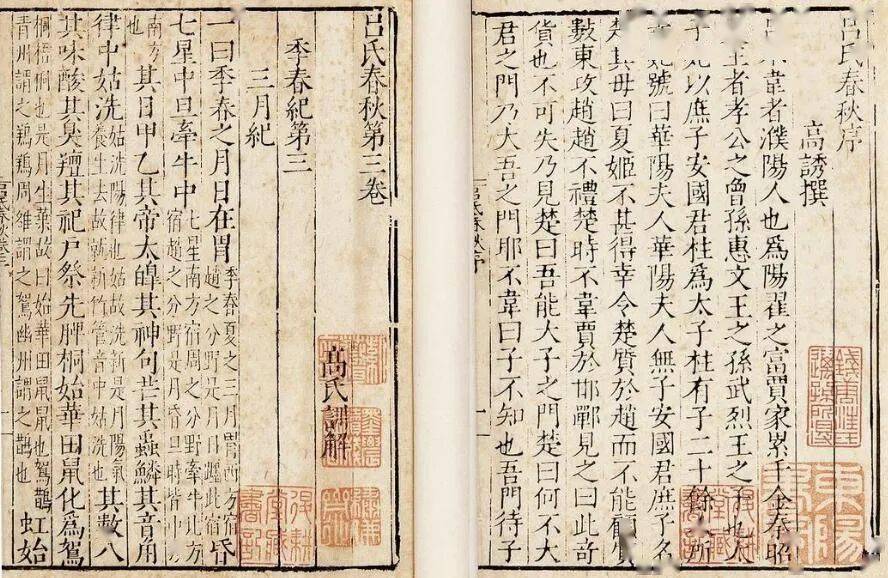 呂氏春秋序
高誘撰
不韋者濮陽人也爲陽翟之富賈家累千金秦昭
王者孝公之曾孫惠文王之孫武烈王之子也太
子死以庶子安國君柱爲太子柱有子二十餘 所
號曰華陽夫人華陽夫人無子安國君庶子名
楚其母曰夏姬不甚得幸令楚質於趙而不能顧質
數東攻趙趙不禮楚時不韋賈於邯鄲見之曰此奇
貨也不可失乃見楚曰吾能大子之門楚曰何不大
君之門乃大吾之門耶不韋曰子不知也吾門待子
呂氏春秋序
呂氏春秋第三卷
高氏訓解
季春紀第三
三月紀
一曰季春之月日在胃季春夏之三月胃西方宿趙之分野是月日躔此宿昏
七星中旦牽牛中七星南方宿周之分野牽牛北方宿趙之分野是月昏旦時皆中
南方也其日甲乙其帝太皥其神句芒其蟲鱗其音角
律中姑洗姑洗陽律也姑故洗新是月陽氣養生去故就新竹管音中姑洗也其數八
其味酸其臭羶其祀戶祭先脾桐始華田鼠化爲鴽
桐梧桐也是月生葉故曰始華田鼠鼠也鴽鶉青州謂之 鶉周雒謂之鴽幽州謂之鶉也虹始